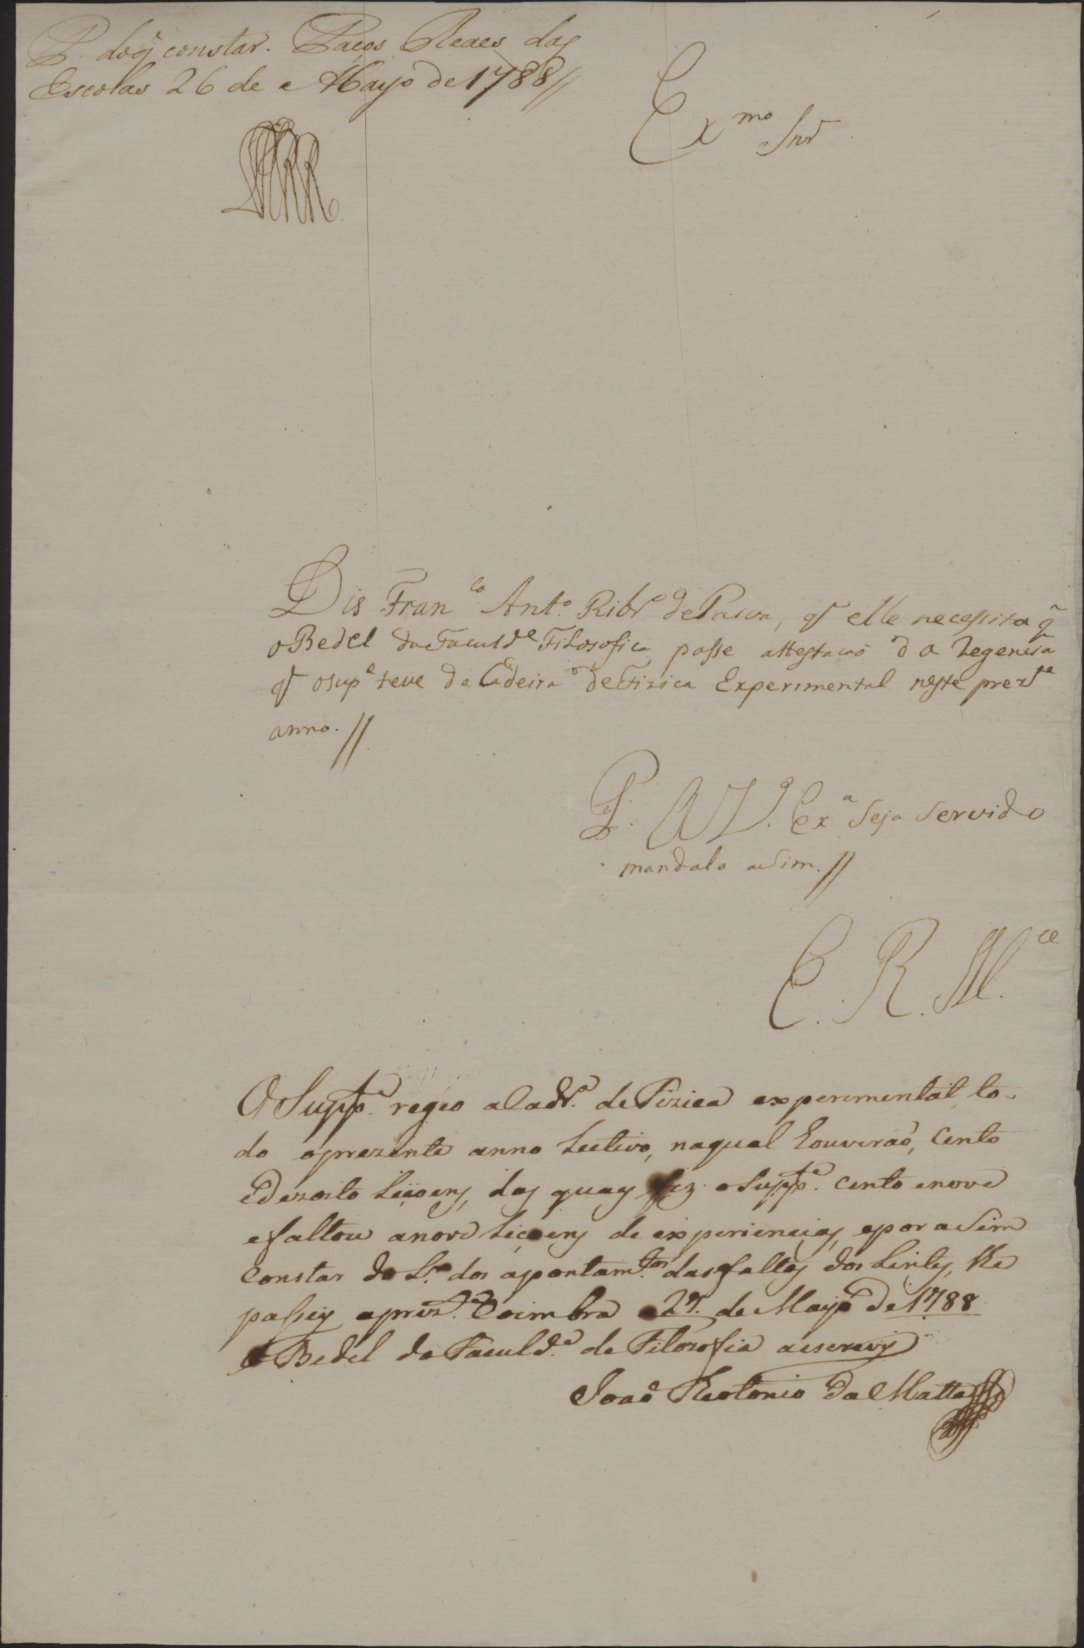 P. do q̃ constar. Paços Reaes das
Escolas 26 de Mayo de 1788//
Exmo Snr
Dis Franco Anto Ribro de Paiva, q̃ elle necessita q̃
o Bedel da Faculde Filosofica passe attestacaõ da Regencia
q̃ o supe teve da Cadeira de Fizica Experimental neste prezte
anno.//
P. A V. Exa Seja Servido
mandalo asim.//
E. R. Mce
O Suppe regeo a Cadra de Fizica experimental to-
do o prezente anno Lectivo, na qual houveraõ, Cento
e dezoito Liçoens, das quays fez o Suppe cento e nove
e faltou a nove Liçoens de experiencias, e por asim
Constar do Lo dos apontamtos das faltas dos Lentes, lhe
passey a prezte Coimbra 27 de Mayo de 1788
O Bedel da Faculde de Filozofia a escrevy
Joaõ Theotonio da Matta